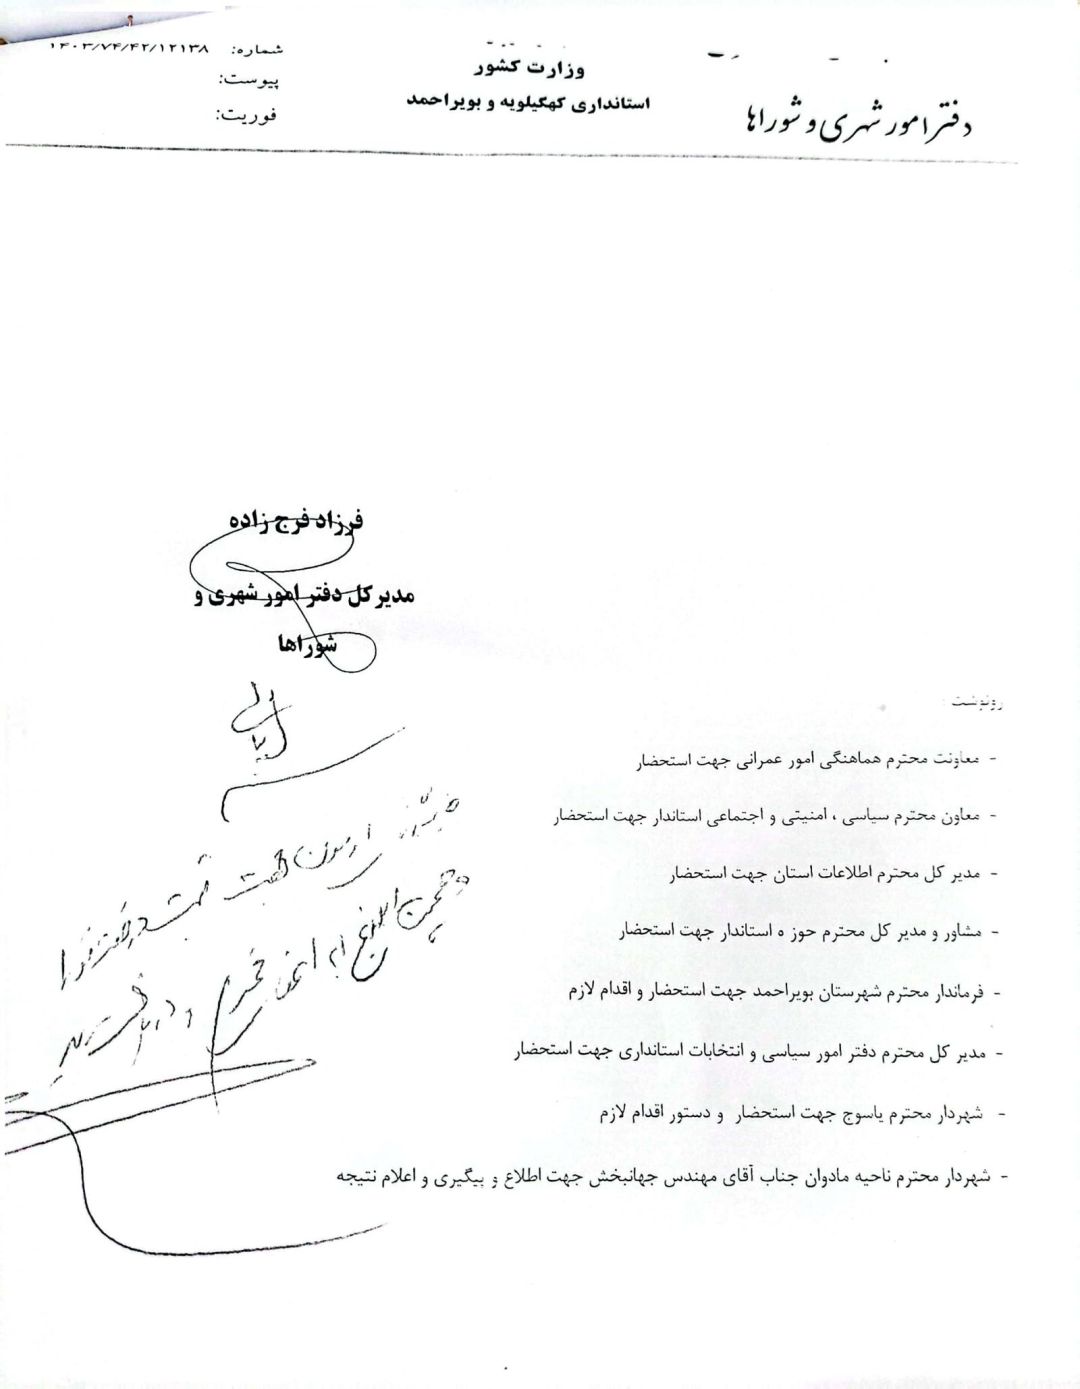 شماره: ۱۴۰۳/۷۴/۴۲/۱۲۱۳۸
پیوست:
فوریت:
وزارت کشور
استانداری کهگیلویه و بویراحمد
دفتر امور شهری و شوراها
فرزاد فرج زاده
مدیر کل دفتر امور شهری و
شوراها
رونوشت :
- معاونت محترم هماهنگی امور عمرانی جهت استحضار
- معاون محترم سیاسی ، امنیتی و اجتماعی استاندار جهت استحضار
- مدیر کل محترم اطلاعات استان جهت استحضار
- مشاور و مدیر کل محترم حوز ه استاندار جهت استحضار
- فرماندار محترم شهرستان بویراحمد جهت استحضار و اقدام لازم
- مدیر کل محترم دفتر امور سیاسی و انتخابات استانداری جهت استحضار
- شهردار محترم یاسوج جهت استحضار و دستور اقدام لازم
- شهردار محترم ناحیه مادوان جناب آقای مهندس جهانبخش جهت اطلاع و پیگیری و اعلام نتیجه